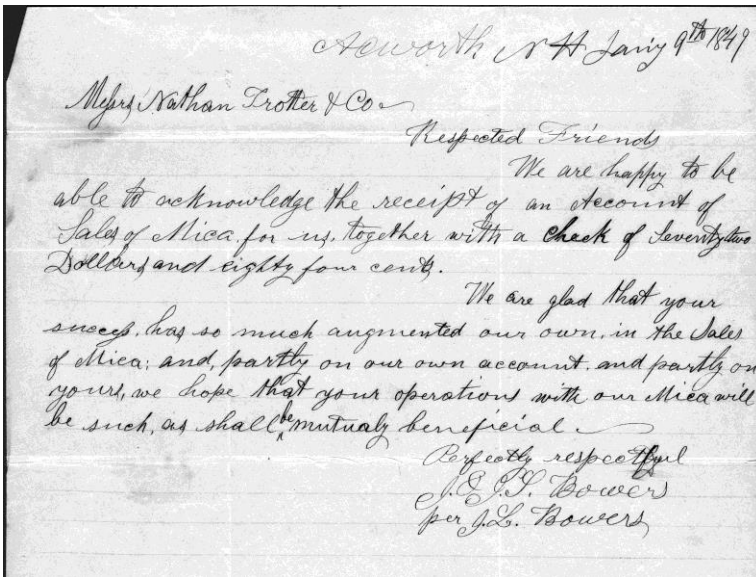 Acworth N H Jany 9th 1849
Messrs Nathan Trotter & Co
Respected Friends
We are happy to be
able to acknowledge the receipt of an Account of
Sales of Mica, for us, together with a check of Seventy two
Dollars, and eighty four cents.
We are glad that your
success, has so much augmented our own, in the Sales
of Mica; and, partly on our own account, and partly on
yours, we hope that your operations with our Mica will
be such, as shall be mutualy beneficial.
Perfectly respectful
J. & J. L. Bowers
per J. L. Bowers